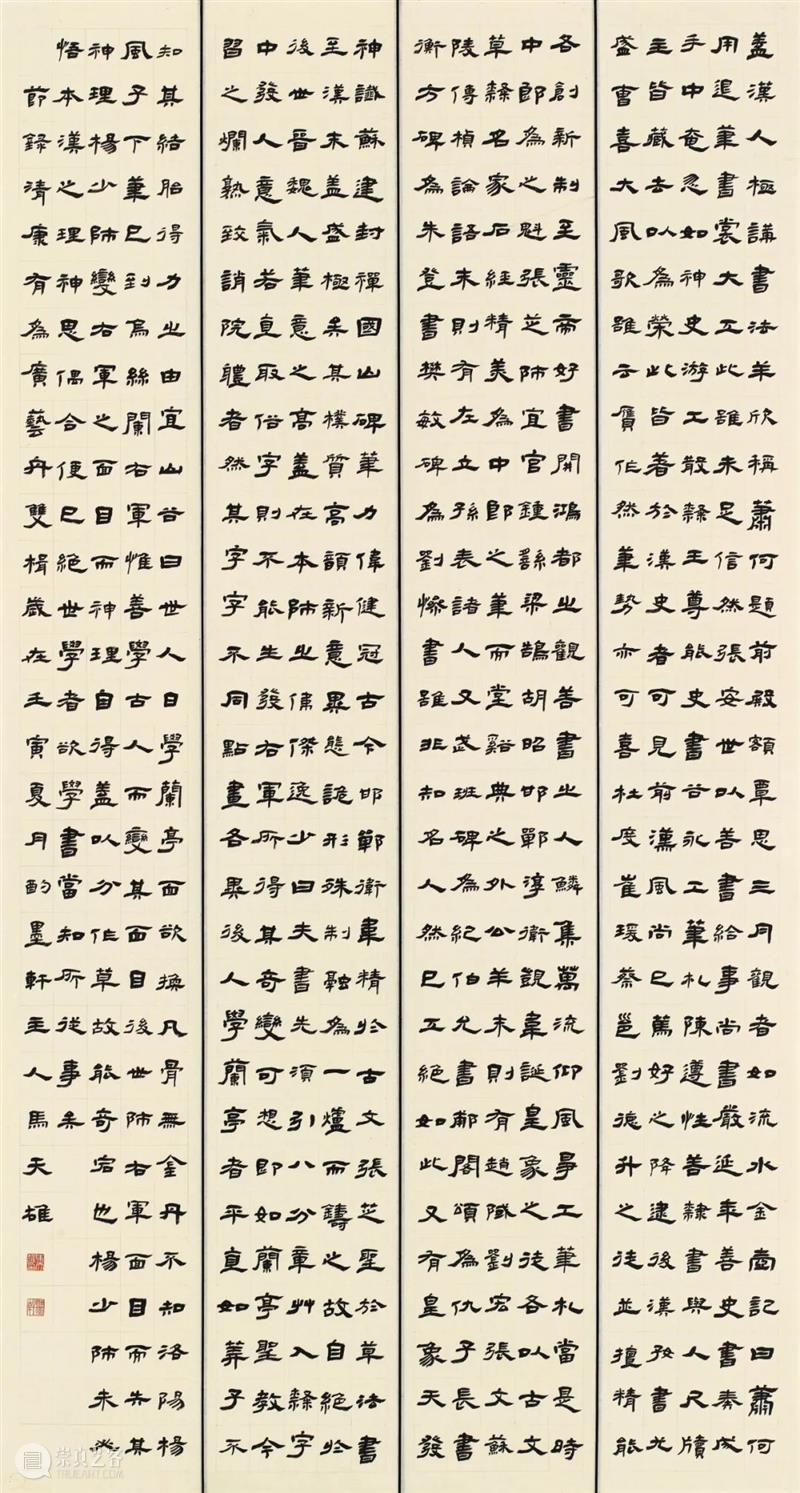 盖漢人極講書法羊欣稱蕭何題前殿額覃思三月觀者如流水金壺記曰蕭何
用退筆書裳大工此雖未足信然張安世以善書給事尚書嚴延年善史書奏成
手中奄忽如神史游工散隸王尊能史書谷永工筆札陳遵性善隸書與人尺牘
主皆藏去以為榮此皆著於漢史者可見前漢風尚已篤好之降逮後漢好書尤
盛曹喜大風歌雖云贗作然筆勢亦可喜杜度崔瑗蔡邕劉德升之徒並擅精能
各創新制至靈帝好書開鴻都之觀善書之人鱗集萬流仰風爭工筆札當是時
中郎為之魁張芝師宜官鍾繇梁鵠胡昭邯鄲淳衛覬韋誕皇象之徒各以古文
草隸名家石經精美為中郎之筆而堂谿典之外公羊末則有趙陚劉宏張文蘇
陵傳楨論語末則有左立孫表諸人又武班碑為紀伯允書郙閣頌為仇子長書
衡方碑為朱登書樊敏碑為劉懆書雖非知名人然已工絕如此又有皇象天發
神讖蘇建封禪國山碑筆力偉健冠古今邯鄲衛韋精於古文張芝聖於草法書
至漢末盖盛極矣其樸質高韻新意異態詭形殊制融為一爐而鑄之故自絕於
後世晉魏人筆意之高盖在本師之偉傑逸少曰夫書先須引八分章艸入隸字
中發人意氣若直取俗字則不能生發右軍所得其奇變可想即如蘭亭聖教今
習之爛熟致誚院體者然其字字不同點畫各異後人學蘭亭者平直如筭子不
知其結胎得力之由宜山谷曰世人日學蘭亭面欲換凡骨無金丹不知洛陽楊
風子下筆已到烏絲闌右軍惟善學古人而變其面目後世師右軍面目而失其
神理楊少師變右軍之面目而神理自得盖以分作草故能奇宕也楊少師未必
悟本漢之理神思偶合便已絕世學者欲學書當知所從事矣
節錄清康有為廣藝舟雙楫歲在壬寅夏月酌墨軒主人馬天雄
崇真艺客
TRUEART.COM